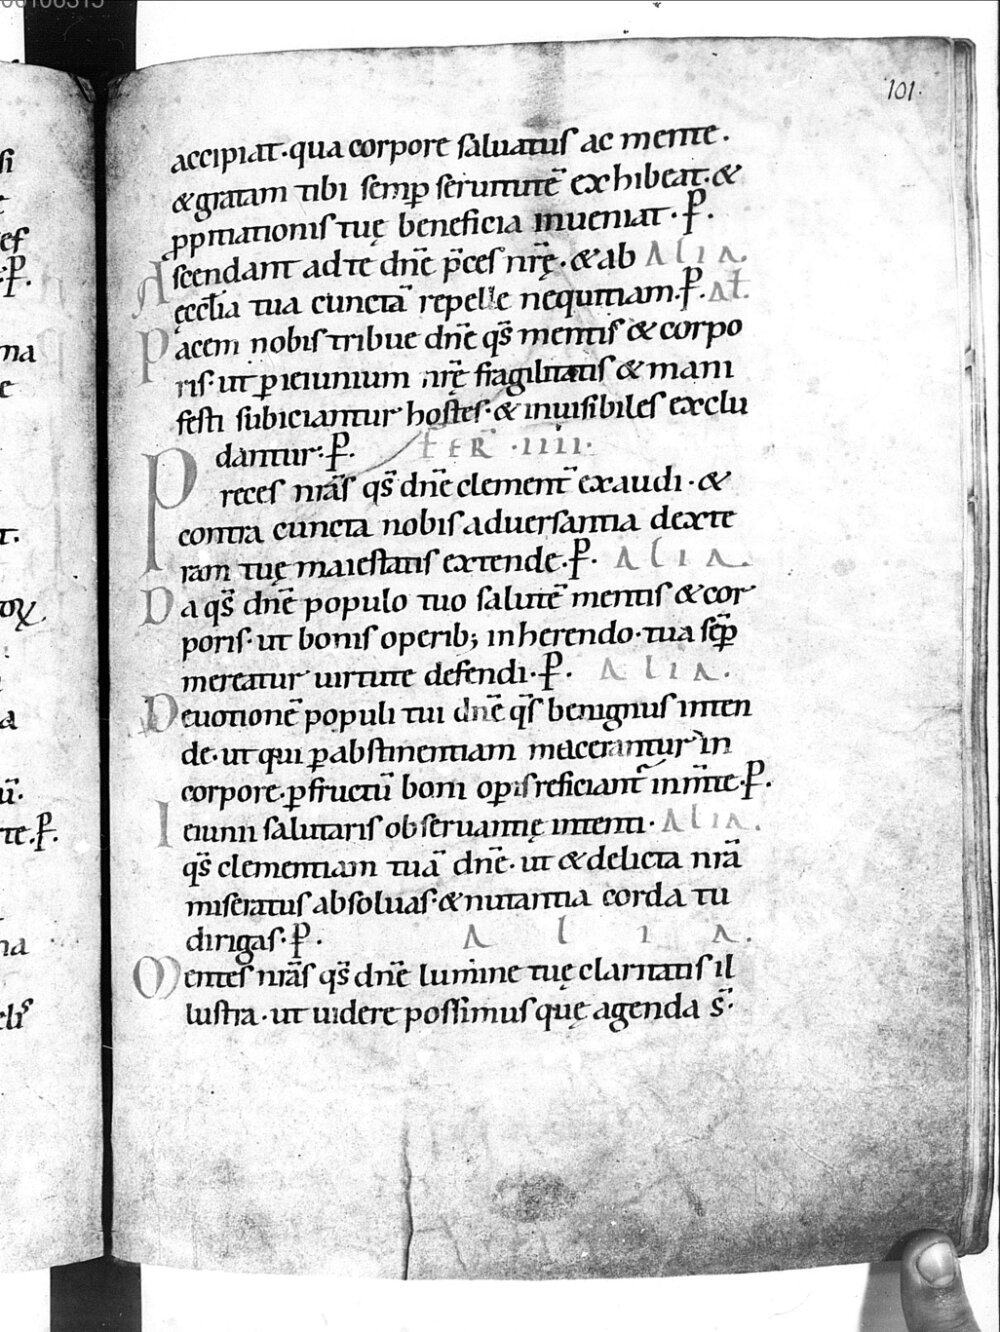 101.
accipiat·qua corpore saluatus ac mente.
& gratam tibi semp̱ seruitutē exhibeat·&
ꝓpitiationis tuę beneficia inueniat·P̱.
Ascendant ad te dn̄e p̄ces nr̄ę·& ab ALIA.
ęcctia tua cunctā repelle nequitiam·P̱. At.
Pacem nobis tribue dn̄e qs̄ mentis & corpo
ris·ut ꝑ ieiunium nr̄ę fragilitatis & mani
festi subiciantur hostes·& inuisibiles exclu
dantur·P̱. FER̄·IIII·
Preces nrās qs̄ dn̄e clement̄ exaudi·&
contra cuncta nobis aduersantia dexte
ram tuę maiestatis extende·P̱. ALIA.
Da qs̄ dn̄e populo tuo salutē mentis & cor
poris·ut bonis operib; inherendo·tua sēp̱
mereatur uirtute defendi·P̱. ALIA.
Deuotionē populi tui dn̄e qs̄ benignus inten
de·ut qui ꝑ abstinentiam macerantur in
corpore·ꝑ fructū boni opis reficiant̄ in m̄te·P̱.
Ieiunii salutaris obseruantię intenti·ALIA.
qs̄ clementiam tuā dn̄e·ut & delicta nrā
miseratus absoluas·& nutantia corda tu
dirigas·P̱. ALIA.
Mentes nrās qs̄ dn̄e lumine tuę claritatis il
lustra·ut uidere possimus quę agenda s̄·